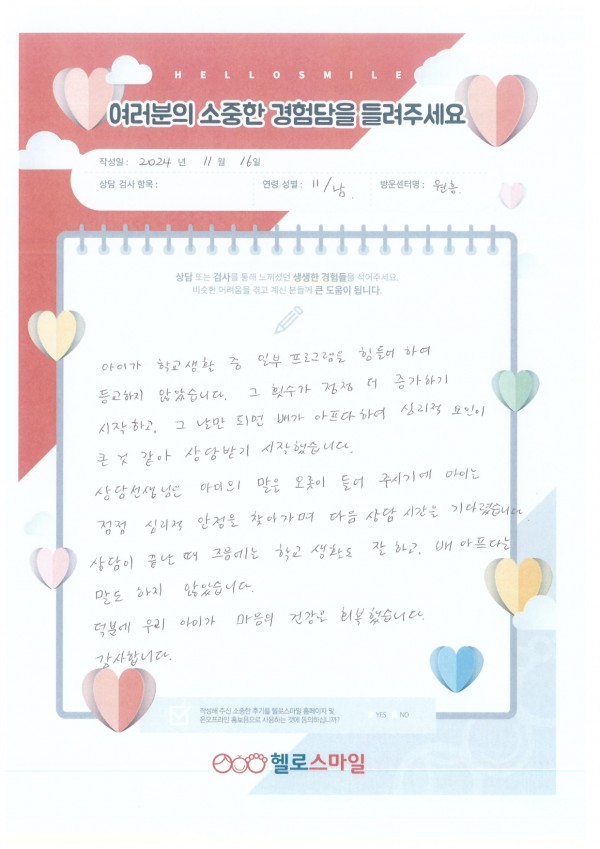 HELLOSMILE
여러분의 소중한 경험담을 들려주세요
작성일 : 2024 년 11 월 16일
상담 검사 항목 : 연령 성별 : 11/남. 방문센터명 : 원흥.
상담 또는 검사를 통해 느끼셨던 생생한 경험들을 적어주세요.
비슷한 어려움을 겪고 계신 분들께 큰 도움이 됩니다.
아이가 학교생활 중 일부 프로그램을 힘들어 하여
등교하지 않았습니다. 그 횟수가 점점 더 증가하기
시작하고, 그 날만 되면 배가 아프다하여 심리적 요인이
큰 것 같아 상담받기 시작했습니다.
상담선생님은 아이의 말을 오롯이 들어 주시기에 아이는
점점 심리적 안정을 찾아가며 다음 상담 시간을 기다렸습니다.
상담이 끝난 때 즈음에는 학교 생활도 잘 하고, 배 아프다는
말도 하지 않았습니다.
덕분에 우리 아이가 마음의 건강을 회복했습니다.
감사합니다.
작성해 주신 소중한 후기를 헬로스마일 홈페이지 및
온오프라인 홍보용으로 사용하는 것에 동의하십니까? YES NO
헬로스마일